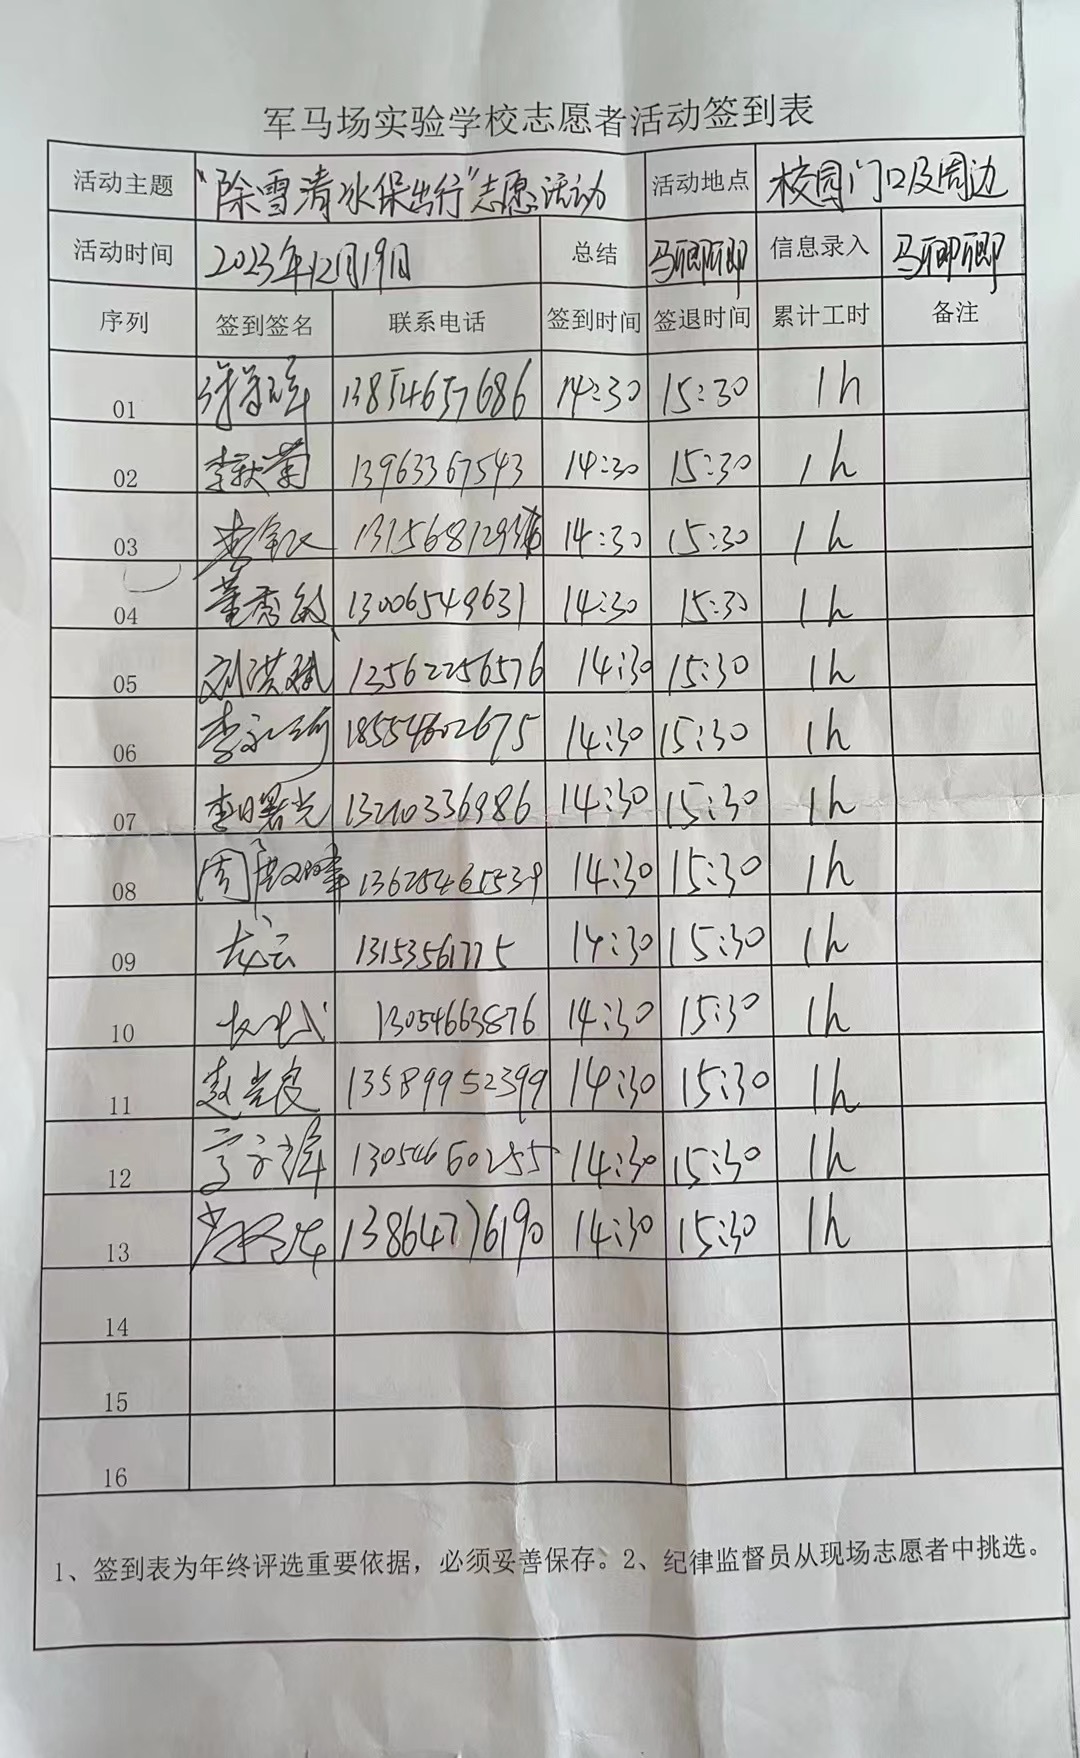 军马场实验学校志愿者活动签到表
活动主题 "除雪清冰保出行"志愿活动 活动地点 校园门口及周边
活动时间 2023年12月19日 总结 马卿卿 信息录入 马卿卿
序列 签到签名 联系电话 签到时间 签退时间 累计工时 备注
01 13854657686 14:30 15:30 1h
02 李秋菊 13963367543 14:30 15:30 1h
03 14:30 15:30 1h
04 董秀敏 13006549631 14:30 15:30 1h
05 刘洪斌 13562256576 14:30 15:30 1h
06 18554602675 14:30 15:30 1h
07 李曙光 13210336986 14:30 15:30 1h
08 周 14:30 15:30 1h
09 龙云 13153561775 14:30 15:30 1h
10 13054663876 14:30 15:30 1h
11 赵光良 13589952399 14:30 15:30 1h
12 13054660255 14:30 15:30 1h
13 13864776190 14:30 15:30 1h
14
15
16
1、签到表为年终评选重要依据，必须妥善保存。2、纪律监督员从现场志愿者中挑选。